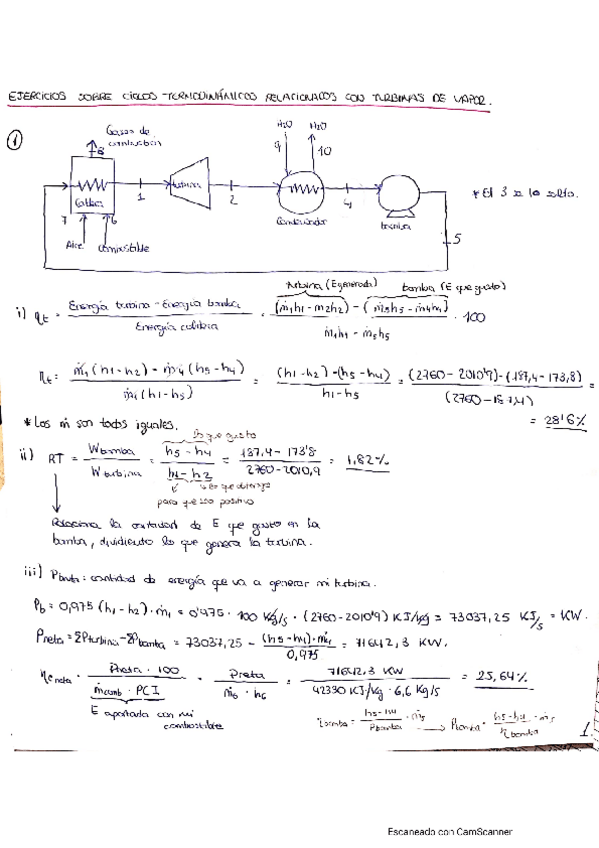 EJERCICIOS SOBRE CICLOS TERMODINÁMICOS RELACIONADOS CON TURBINAS DE VAPOR.
1
Gases de combustión
8
H2O H2O
9 10
turbina
Caldera
1
2
Condensador
4
bomba
5
7 6
Aire Combustible
* El 3 se lo salta.
turbina (E generada) bomba (E que gasto)
i) ηt = Energía turbina - Energía bomba / Energía caldera = (ṁ1h1 - ṁ2h2) - (ṁ5h5 - ṁ4h4) / ṁ1h1 - ṁ5h5 · 100
ηt = ṁ1 (h1-h2) - ṁ4 (h5-h4) / ṁ1 (h1-h5) = (h1-h2) - (h5-h4) / h1-h5 = (2760 - 2010'9) - (187,4 - 173,8) / (2760 - 187,4) = 28'6%
* Los ṁ son todos iguales.
lo que gasto
ii) RT = Wbomba / Wturbina = h5 - h4 / h1 - h2 = 187,4 - 173'8 / 2760 - 2010,9 = 1,82%
lo que obtengo
para que sea positivo
Relaciona la cantidad de E que gasto en la
bomba, dividiento lo que genera la turbina.
iii) Pbruta: cantidad de energía que va a generar mi turbina.
Pb = 0,975 (h1-h2) · ṁ1 = 0'975 · 100 Kg/s · (2760 - 2010'9) KJ/kg = 73037,25 KJ/s = KW.
Pneta = ΣPturbina - ΣPbomba = 73037,25 - (h5-h4) · ṁ1 / 0,975 = 71642,3 KW.
ηe neta = Pneta · 100 / ṁcomb · PCI = Pneta / ṁ6 · h6 = 71642,3 KW / 42330 KJ/kg · 6,6 Kg/s = 25,64%
E aportada con mi
combustible
ηbomba = h5-h4 / Pbomba · ṁ5 → Pbomba = h5-h4 · ṁ5 / ηbomba
1.
Escaneado con CamScanner